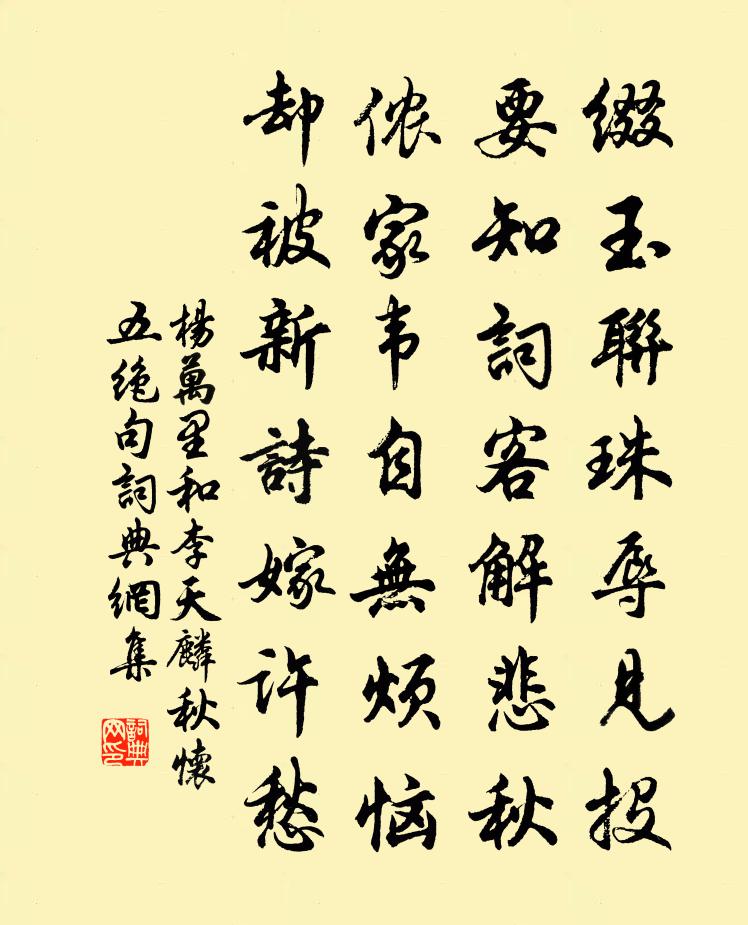 綴玉聯珠辱見投
要知詞客解悲秋
侬家韦自無煩恼
却被新詩嫁許愁
楊萬里和李天麟秋懷
五絶句詞典網集
詞典
网印